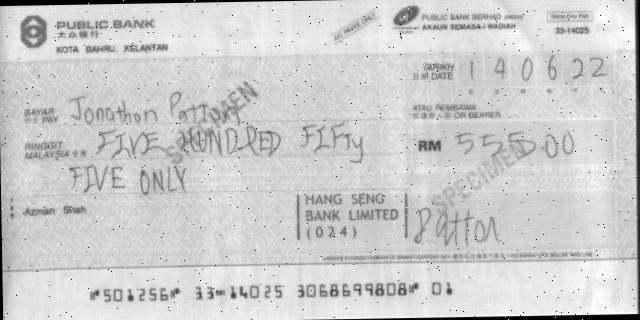 PUBLIC BANK
大众银行
KOTA BAHRU, KELANTAN
A/C PAYEE ONLY
PUBLIC BANK BERHAD
AKAUN SEMASA-I WADIAH
Stamp Duty Paid
33-14025
TARIKH
日期 DATE 140622
BAYAR
PAY Jonathon Pattion
ATAU PEMBAWA
OR BEARER
RINGGIT
MALAYSIA FIVE HUNDRED FIFTY
FIVE ONLY
RM 555.00
SPECIMEN
SPECIMEN
Azman Shah
HANG SENG
BANK LIMITED
(024)
Patton
⑈501256⑈ 33⑉14025 3068699808⑈ 01